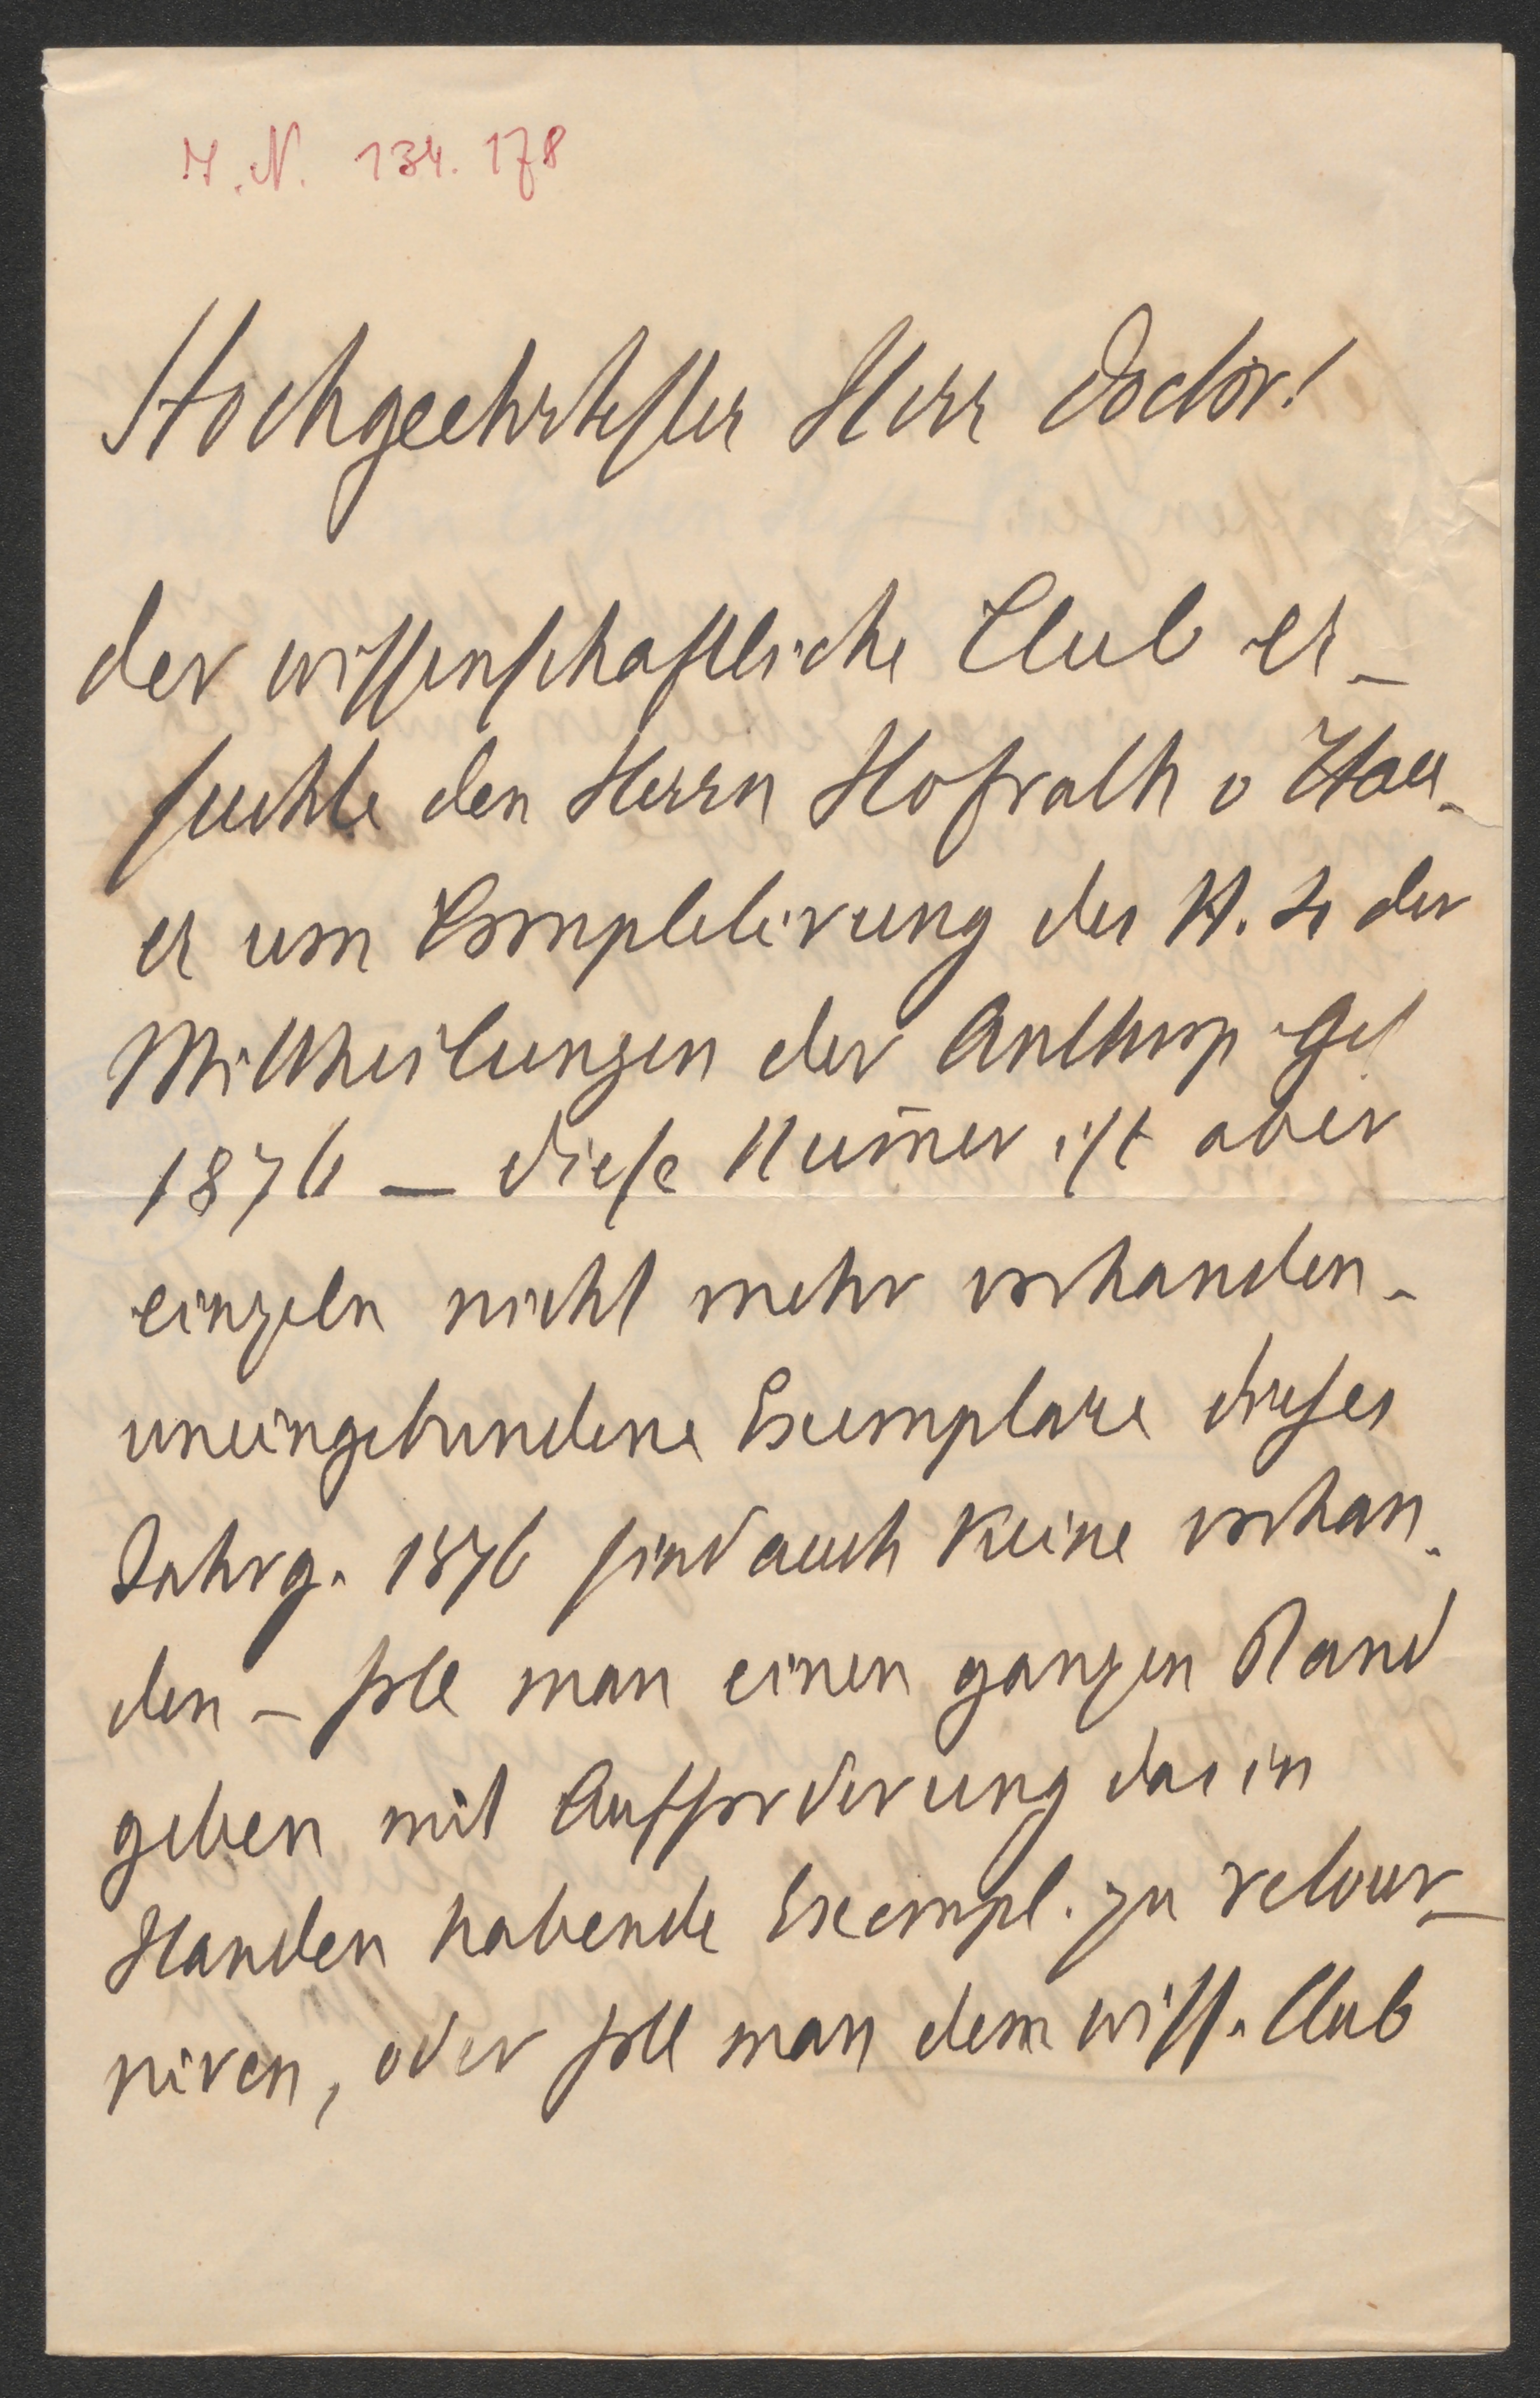 I. N. 134.178
Hochgeehrtester Herr Doctor!
der wissenschaftliche Club er-
suchte den Herrn Hofrath v Hau-
er um Completirung der N. 4 der
Mittheilungen der Anthrop. Ges
1876 — diese Num̄er ist aber
einzeln nicht mehr vorhanden -
uneingebundene Exemplare dieses
Jahrg. 1876 sind auch keine vorhan-
den - soll man einen ganzen Band
geben mit Aufforderung das in
Handen habende Exempl. zu retour-
niren, oder soll man dem wiss. Club